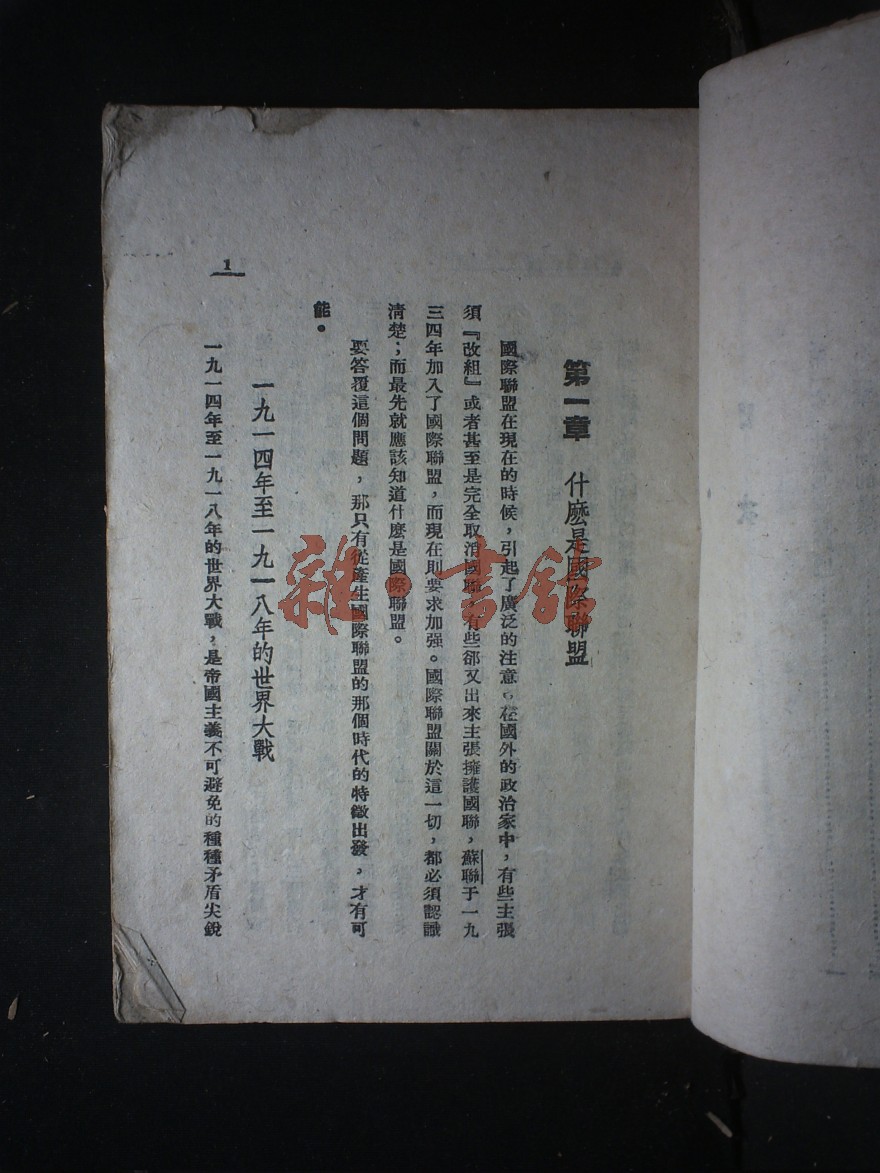 第一章 什麼是國際聯盟
國際聯盟在現在的時候，引起了廣泛的注意。在國外的政治家中，有些主張
須『改組』或者甚至是完全取消國聯，有些郤又出來主張擁護國聯，蘇聯于一九
三四年加入了國際聯盟，而現在則要求加强。國際聯盟關於這一切，都必須認識
清楚；而最先就應該知道什麼是國際聯盟。
要答覆這個問題，那只有從產生國際聯盟的那個時代的特徵出發，才有可
能。
一九一四年至一九一八年的世界大戰
一九一四年至一九一八年的世界大戰，是帝國主義不可避免的種種矛盾尖銳
1
雜·書館